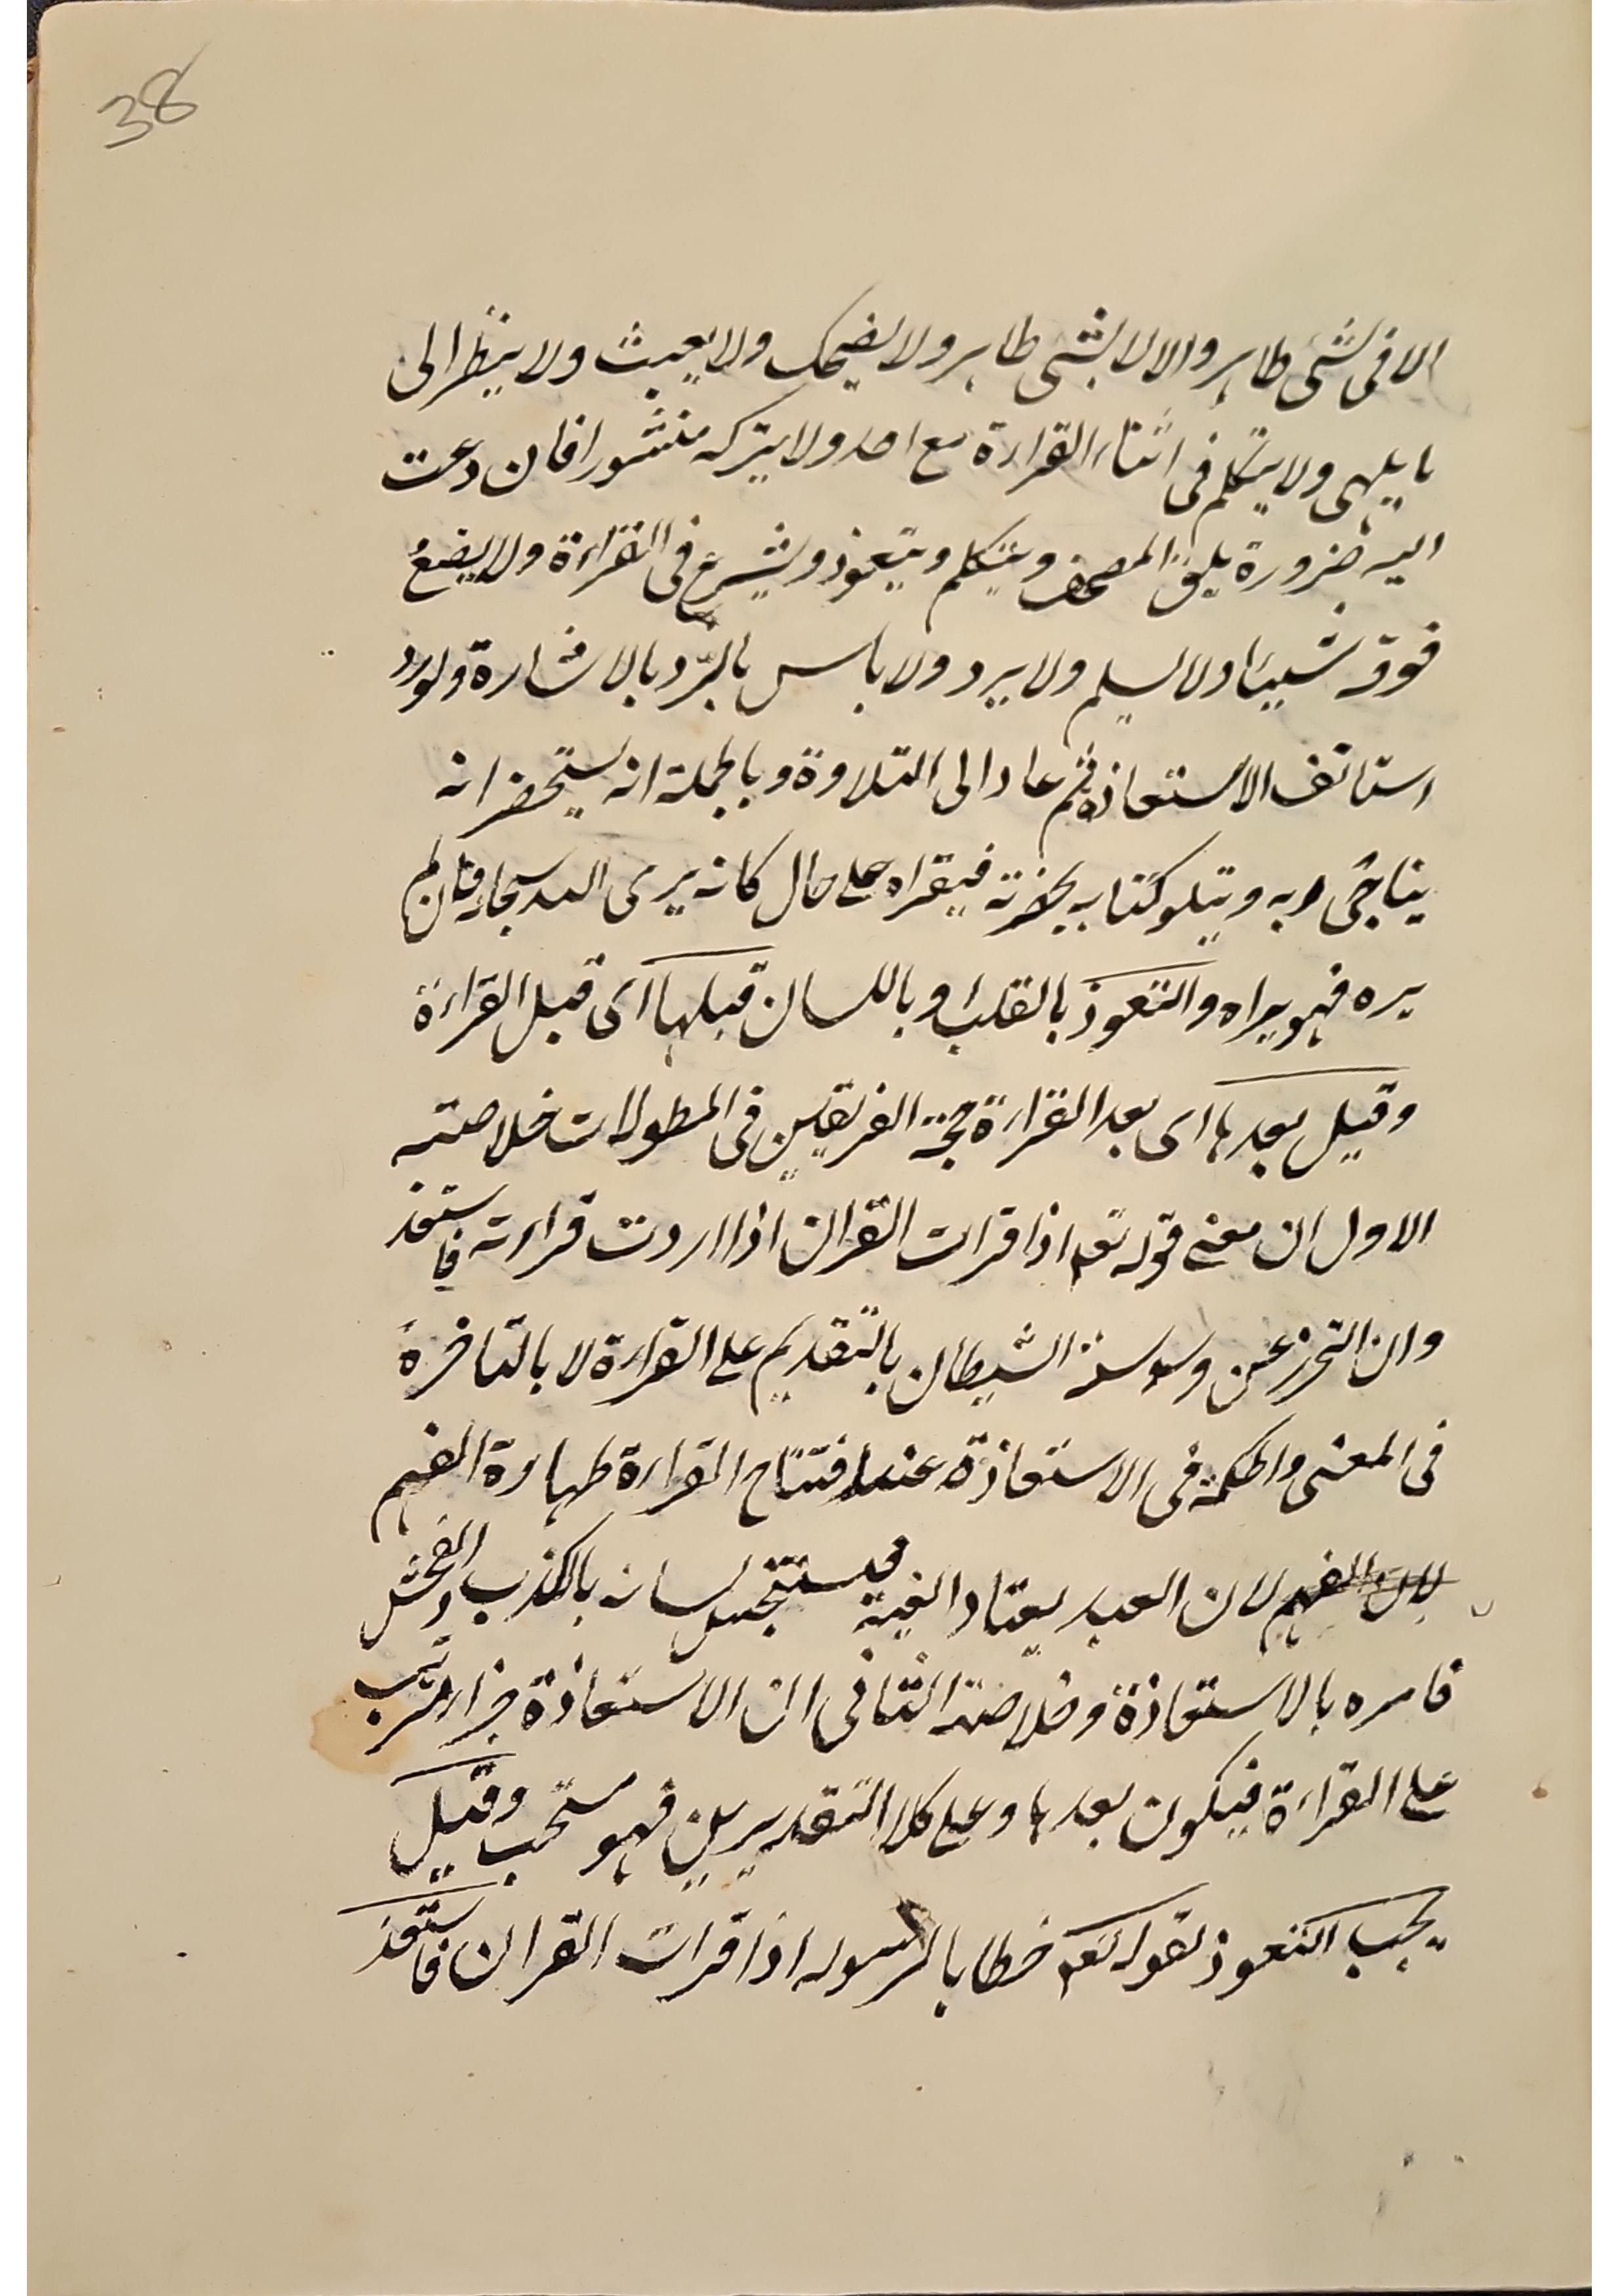 38
الا فى شى طاهر والا لا بشى طاهر ولا يضحك ولا يعبث ولا ينظر الى
ما يلهى ولا يتكلم فى اثناء القراءة مع احد ولا يتركه منشورا فان دعت
اليه ضرورة يلق المصحف ويتكلم ويتعوذ ويشرع فى القراءة ولا يضع
فوقه شيئا ولا يسلم ولا يرد ولا باس بالرد بالاشارة ولو رد
استانف الاستعاذة ثم عاد الى التلاوة وبالجملة انه يستحضر انه
يناجى ربه ويتلو كتابه بحضرته فيقراه على حال كانه يرى الله سبحانه فان لم
يره فهو يراه والتعوذ بالقلب وباللسان قبلها اى قبل القراءة
وقيل بعدها اى بعد القراءة حجة الفريقين فى المطولات خلاصته
الاول ان معنى قوله تعم اذا قرات القران اذا اردت قراءته فاستعذ
وان التحرز عن وسوسة الشيطان بالتقديم على القراءة لا بالتاخر
فى المعنى والحكمة فى الاستعاذة عند افتتاح القراءة طهارة الفم
لان الفم لان العبد يعتاد الغيبة فيستنجس لسانه بالكذب والفحش
فامره بالاستعاذة وخلاصة الثانى ان الاستعاذة جزاء مترتب
على القراءة فيكون بعدها وعلى كلا التقديرين فهو مستحب وقيل
يجب التعوذ لقوله تعم خطابا لرسوله اذا قرات القران فاستعذ